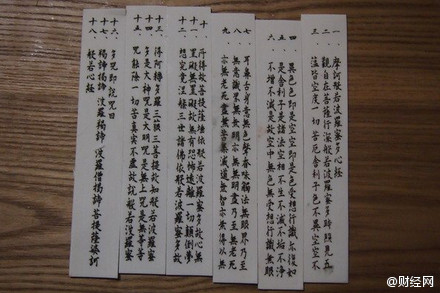 一、摩訶般若波羅蜜多心経
二、觀自在菩薩行深般若波羅蜜多時照見五
三、蘊皆空度一切苦厄舍利子色不異空空不
四、異色色即是空空即是色受想行識亦復如
五、是舍利子是諸法空相不生不滅不垢不淨
六、不增不減是故空中無色無受想行識無眼
七、耳鼻舌身意無色聲香味觸法無眼界乃至
八、無意識界無無明亦無無明盡乃至無老死
九、亦無老死盡無苦集滅道無智亦無得以無
十、所得故菩提薩埵依般若波羅蜜多故心無
十一、罣礙無罣礙故無有恐怖遠離一切顛倒夢
十二、想究竟涅槃三世諸佛依般若波羅蜜多故
十三、得阿耨多羅三藐三菩提故知般若波羅蜜
十四、多是大神咒是大明咒是無上咒是無等等
十五、咒能除一切苦真實不虛故說般若波羅蜜
十六、多咒即說咒曰
十七、揭諦揭諦 波羅揭諦 波羅僧揭諦菩提薩婆訶
十八、般若心経
@财经网